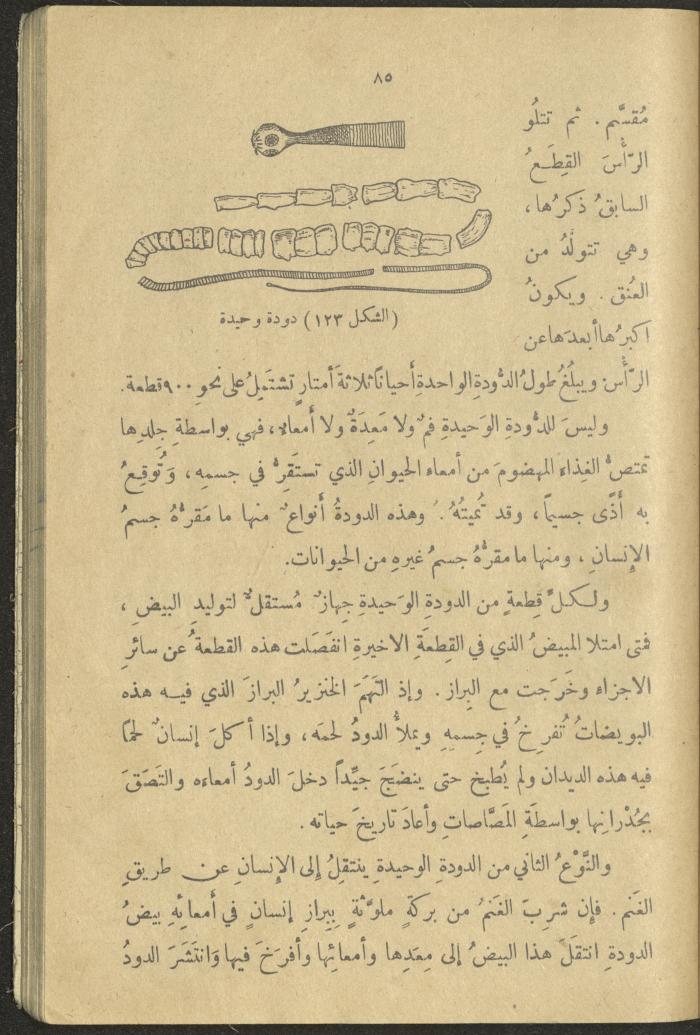 ٨٥
مُقسَّم . ثم تتلُو
الرّأْسَ القِطَعُ
السابقُ ذكرُها ،
وهي تتولَّدُ من
العُنق . ويكونُ
اكبرُها أبعدَها عن
(الشكل ١٢٣) دودة وحيدة
الرّأْس ويبلُغُ طولُ الدُّودةِ الواحدةِ أحياناً ثلاثةَ أمتارٍ تشتَمِلُ على نحوِ ٩٠٠ قطعة .
وليسَ للدُّودةِ الوَحيدةِ فمٌ ولا مَعِدَةٌ ولا أمعاء ، فهي بواسطةِ جِلدِها
تمتصُّ الغِذاءَ المهضومَ من أمعاء الحيوانِ الذي تستَقِرُّ في جسمِه ، وَتُوقِعُ
به أذًى جسيماً ، وقد تُميتُهُ . وهذه الدودةُ أنواعٌ منها ما مَقرُّهُ جسمُ
الإنسانِ ، ومنها ما مقرُّهُ جسمُ غيرِهِ من الحيوانات .
ولكلِّ قِطعةٍ من الدودةِ الوَحيدةِ جِهازٌ مُستقلٌّ لتوليدِ البيضِ ،
فمتى امتلا المبيضُ الذي في القِطعَةِ الاخيرةِ انفَصَلت هذه القطعةُ عن سائرِ
الاجزاء وخَرَجت مع البِراز . وإذ التَهَمَ الخنزيرُ البرازَ الذي فيه هذه
البويضاتُ تُفرِخُ في جِسمِهِ ويملأُ الدودُ لحمَه ، وإذا أكلَ إنسانٌ لحمًا
فيه هذه الديدان ولم يُطبخ حتى ينضَجَ جيِّداً دخلَ الدودُ أمعاءه والتَصَقَ
بجُدْرانِها بواسطَةِ المَصَّاصاتِ وأعادَ تاريخَ حياته .
والنَّوْعُ الثاني من الدودةِ الوحيدةِ ينتقلُ إلى الإنسانِ عن طريقِ
الغَنم . فإن شربَ الغَنمُ من بركةٍ ملوَّثةٍ بِبِرازِ إنسانٍ في أمعائِهِ بيضُ
الدودةِ انتقلَ هذا البيضُ إلى مِعَدِها وأمعائِها وأفرَخَ فيها وَانتَشَرَ الدودُ